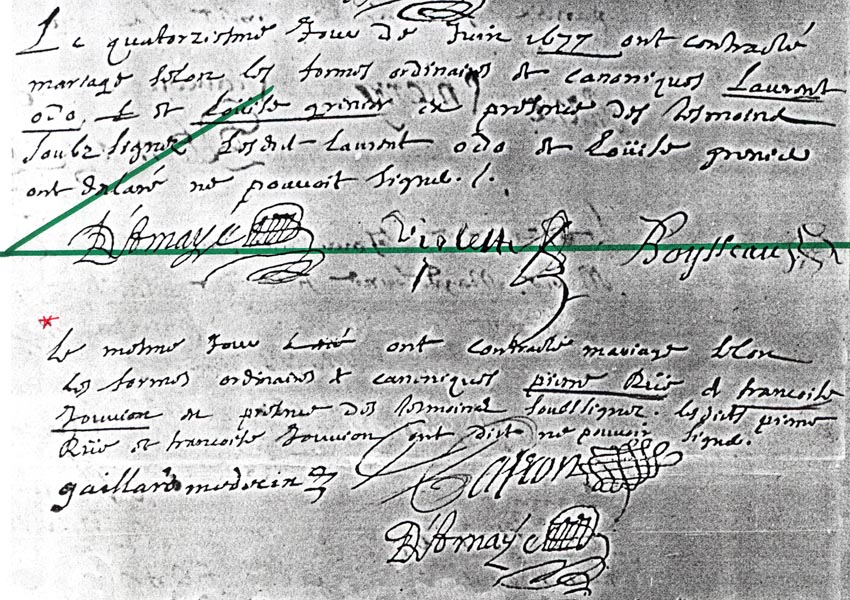 Le quatorziesme Jour de Juin 1677 ont contracté
mariage selon les formes ordinaires et canoniques Laurent
odo, et Loüise grenier en presence des tesmoins
soubz signez Lesdit Laurent odo et Loüise grenier
ont declaré ne pouvoir signer ./.
D'Amayé Violette Boysseau
*
Le mesme Jour ont contracté mariage selon
les formes ordinaires & canoniques pierre Rüe et francoise
Jouvion en presence des tesmoins soubssignez. lesdits pierre
Rüe et francoise Jouvion ont dict ne pouvoir signer.
gaillard medecin Caron
D'Amayé